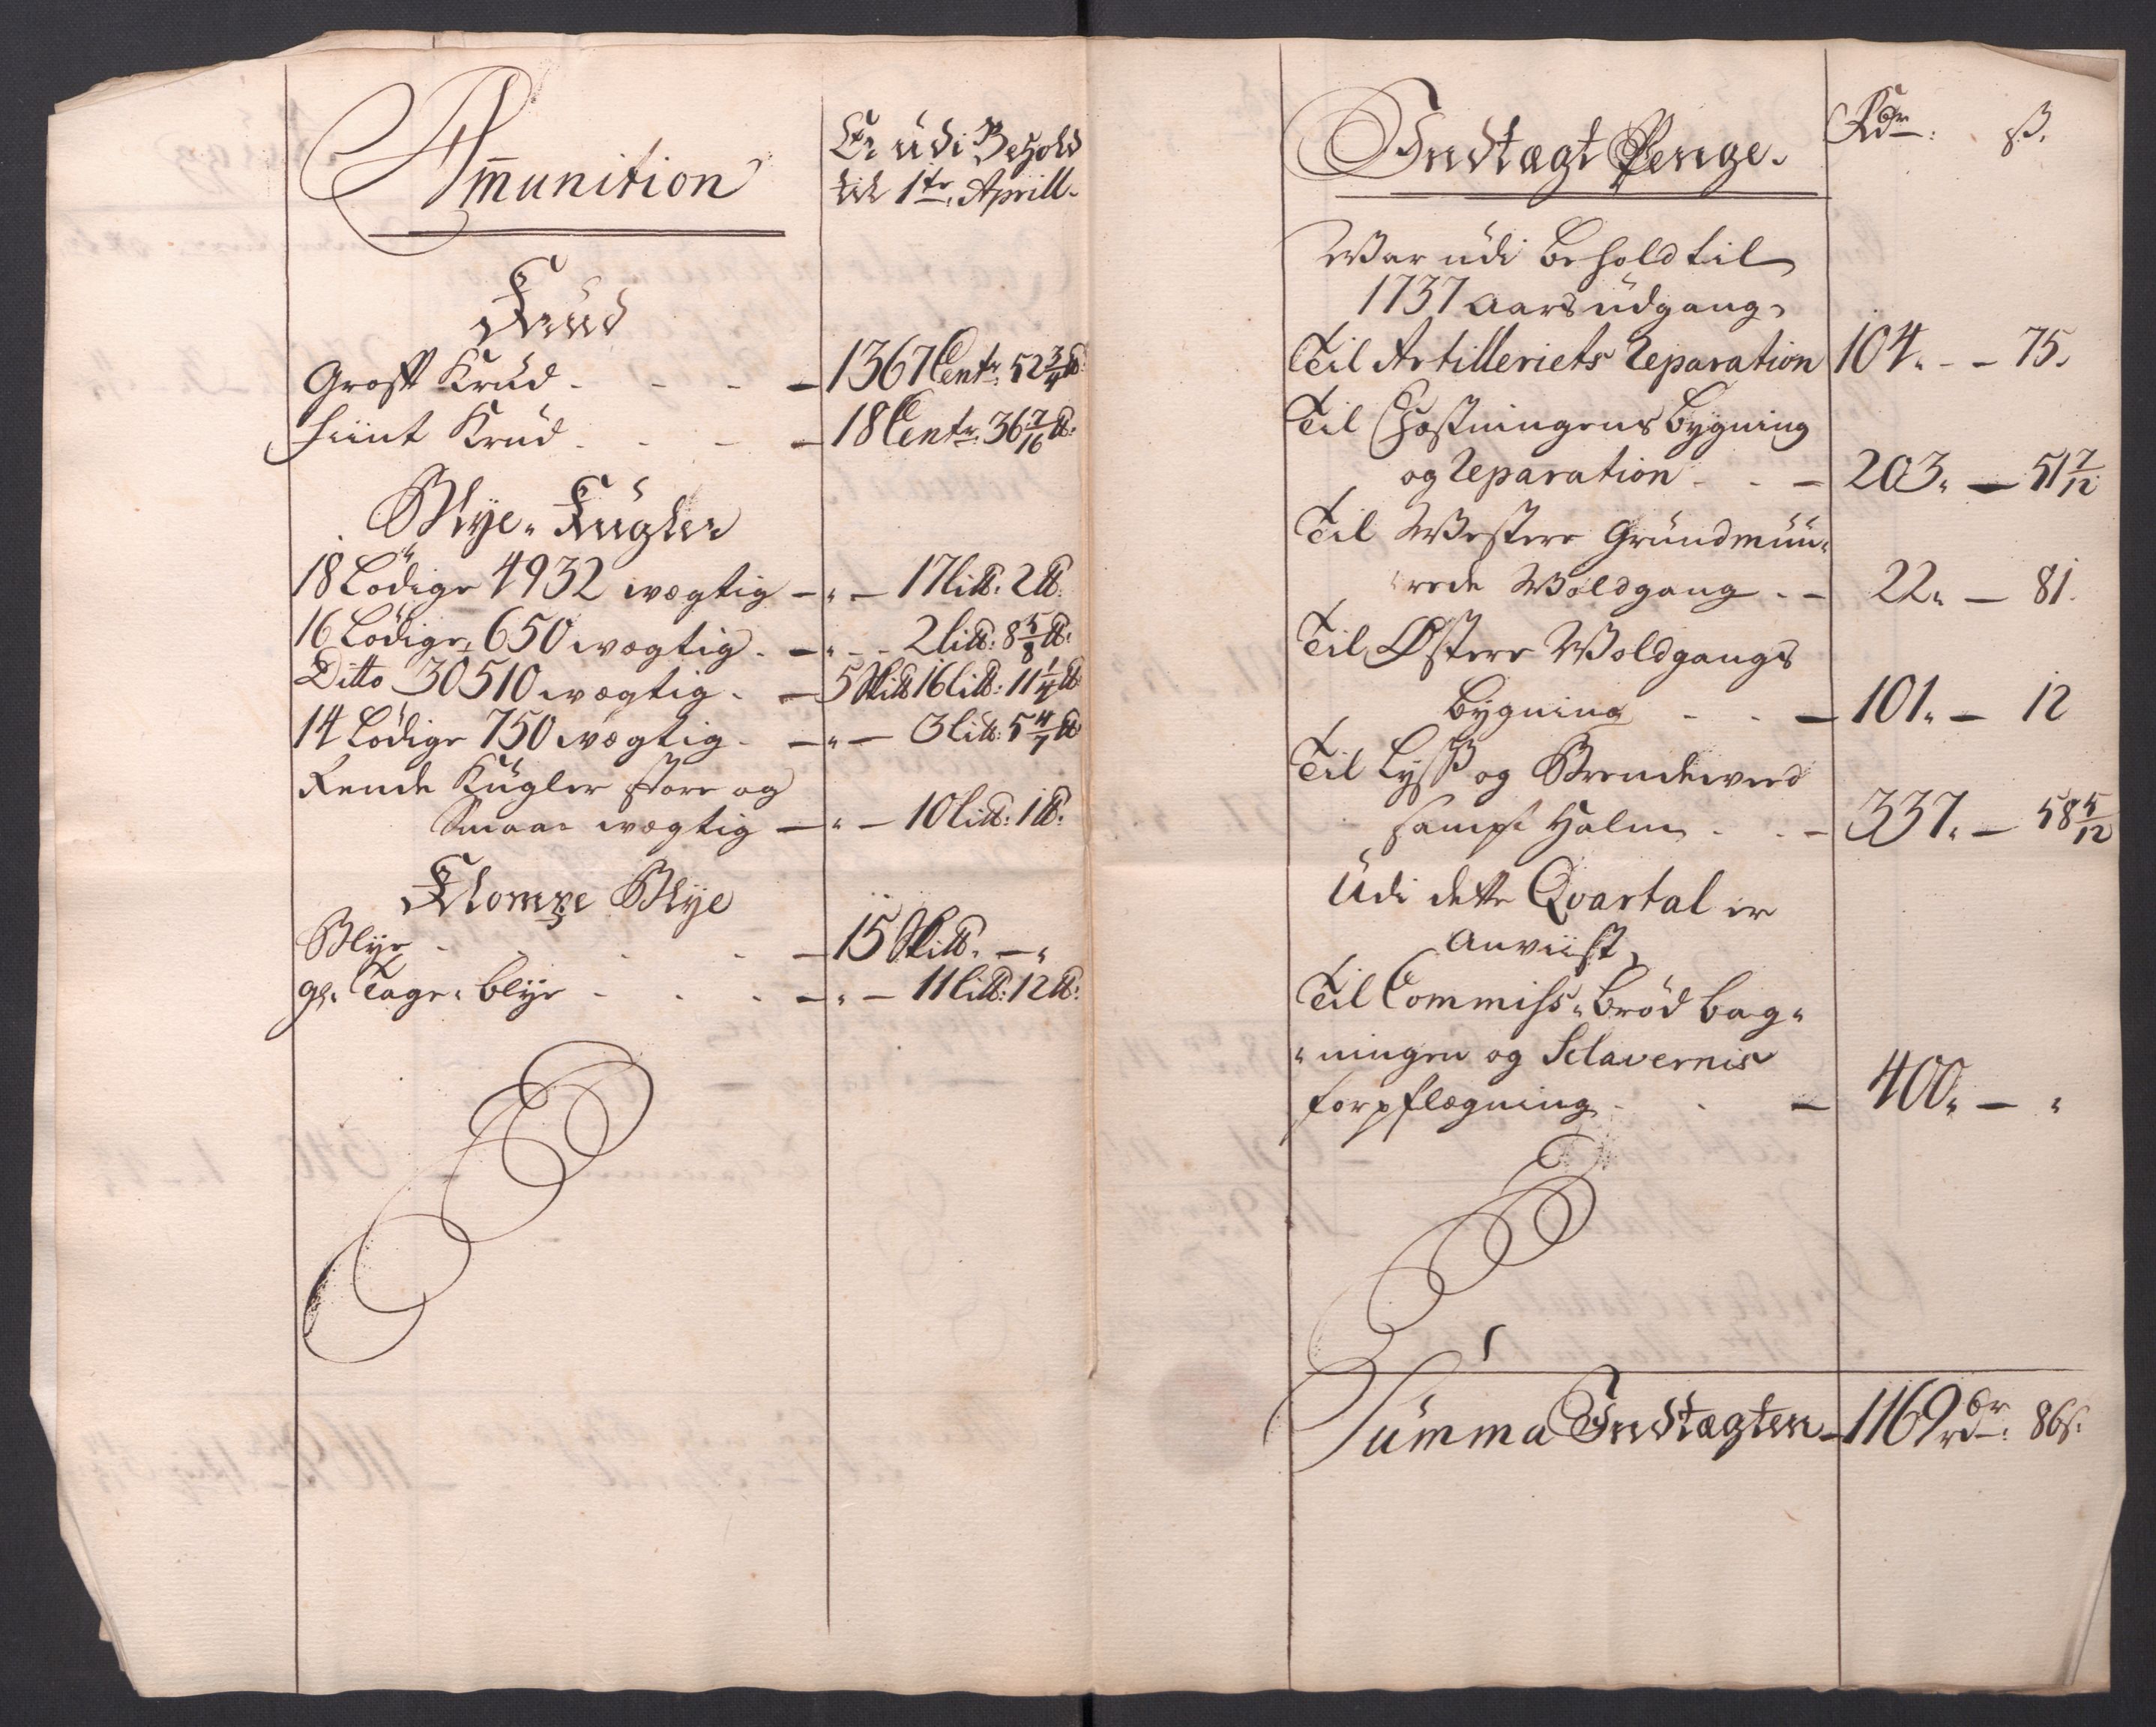 Ammunition
Er udi Behold
til 1te Aprill.
Krud
Groft Krud - - - 1367 Centr: 52 3/4 ℔:
Fiint Krud - - - 18 Centr: 36 7/16 ℔:
Blye-Kugler
18 Lödige 4932 wægtig - " - 17 Li℔: 2 ℔:
16 Lödige 650 wægtig - " - 2 Li℔: 8 5/8 ℔:
Ditto 30510 wægtig - 5 Ski℔ 16 Li℔: 11 1/4 ℔:
14 Lödige 750 wægtig - " - 3 Li℔: 5 4/7 ℔:
Rende Kugler store og
Smaae wægtig - " - 10 Li℔: 1 ℔:
Klompe Blye
Blye - - - 15 Ski℔: - "
gl: Tage-blye - - - " - 11 Li℔: 12 ℔:
Indtægt Penge. Rdr: ß.
War udi behold til
1737 Aars udgang,
Til Artilleriets Reparation 104. - 75.
Til Fæstningens bygning
og Reparation - - 203. - 51 7/12
Til Westere Grundmuu-
rede Woldgang - - 22. - 81.
Til Østere Woldgangs
bygning - - 101. - 12
Til Lyss og Brendeveed
sampt Halm - - 337. - 58 5/12
Udi dette Qvartal er
Anviist,
Til Commiss-brød bag-
ningen og Sclavernis
forpflegning - - 400. - "
Summa Indtægten - 1169 rdr: 86 s: